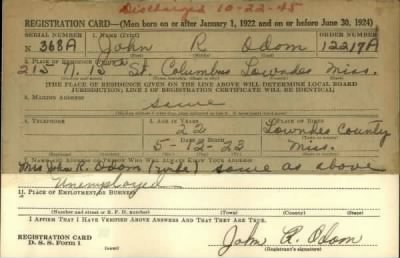 Discharged 10-22-45
REGISTRATION CARD—(Men born on or after January 1, 1922 and on or before June 30, 1924)
SERIAL NUMBER 1. NAME (Print) ORDER NUMBER
N 368A John R Odom 12217A
2. PLACE OF RESIDENCE (Print)
213 N. 15 St. Columbus Lowndes Miss.
[THE PLACE OF RESIDENCE GIVEN ON THE LINE ABOVE WILL DETERMINE LOCAL BOARD
JURISDICTION; LINE 2 OF REGISTRATION CERTIFICATE WILL BE IDENTICAL]
3. MAILING ADDRESS
same
4. TELEPHONE 5. AGE IN YEARS 6. PLACE OF BIRTH
22 Lowndes County
DATE OF BIRTH
5-12-23 Miss.
7. NAME AND ADDRESS OF PERSON WHO WILL ALWAYS KNOW YOUR ADDRESS
Mrs John R. Odom (wife) same as above
Unemployed
11. PLACE OF EMPLOYMENT OR BUSINESS
(Number and street or R. F. D. number) (Town) (County) (State)
I AFFIRM THAT I HAVE VERIFIED ABOVE ANSWERS AND THAT THEY ARE TRUE.
REGISTRATION CARD
D. S. S. Form 1
John R. Odom
(Registrant's signature)